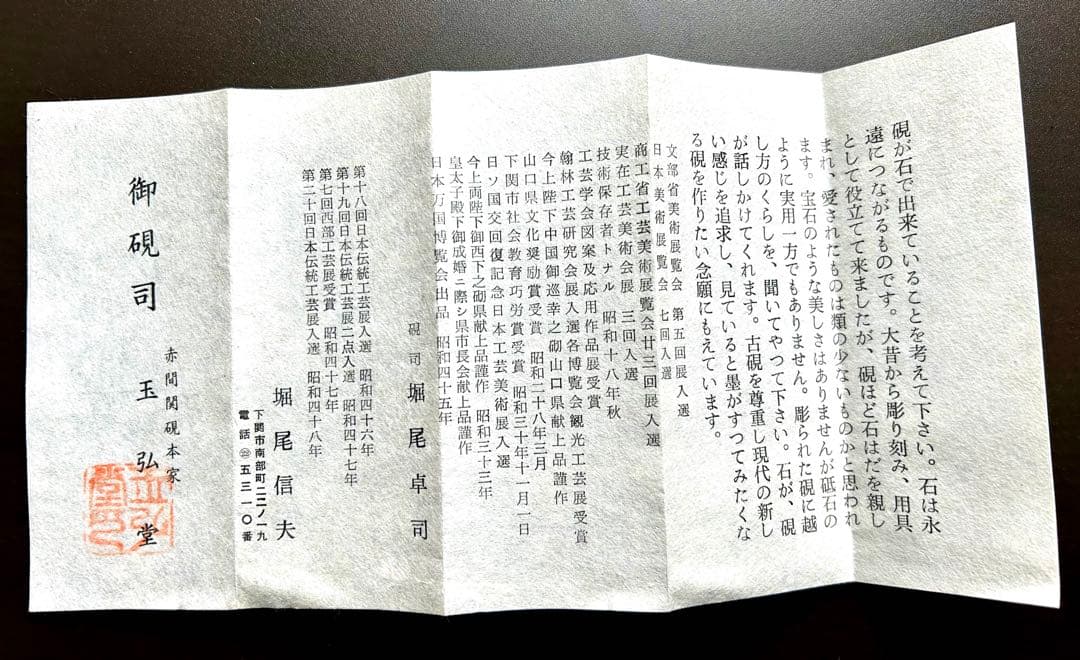 硯が石で出来ていることを考えて下さい。石は永
遠につながるものです。大昔から彫り刻み、用具
として役立てて来ましたが、硯ほど石はだを親し
まれ、愛されたものは類の少ないものかと思われ
ます。宝石のような美しさはありませんが砥石の
ように実用一方でもありません。彫られた硯に越
し方のくらしを、聞いてやって下さい。石が、硯
が話しかけてくれます。古硯を尊重し現代の新し
い感じを追求し、見ていると墨がすってみたくな
る硯を作りたい念願にもえています。
文部省美術展覧会 第五回展入選
日本美術展覧会 七回入選
商工省工芸美術展覧会廿三回展入選
実在工芸美術会展 三回入選
技術保存者トナル 昭和十八年秋
工芸学会図案及応用作品展受賞
翰林工芸研究会展入選各博覧会観光工芸展受賞
今上陛下中国御巡幸之砌山口県献上品謹作
山口県文化奨励賞受賞 昭和二十八年三月
下関市社会教育功労賞受賞 昭和三十年十一月一日
日ソ国交回復記念日本工芸美術展入選
今上両陛下御西下之砌県献上品謹作 昭和三十三年
皇太子殿下御成婚ニ際シ県市長会献上品謹作
日本万国博覧会出品 昭和四十五年
硯司 堀尾卓司
第十八回日本伝統工芸展入選 昭和四十六年
第十九回日本伝統工芸展二点入選 昭和四十七年
第七回西部工芸展受賞 昭和四十七年
第二十回日本伝統工芸展入選 昭和四十八年
堀尾信夫
下関市南部町二二ノ一九
電話㉒五三一〇番
赤間関硯本家
御硯司 玉弘堂